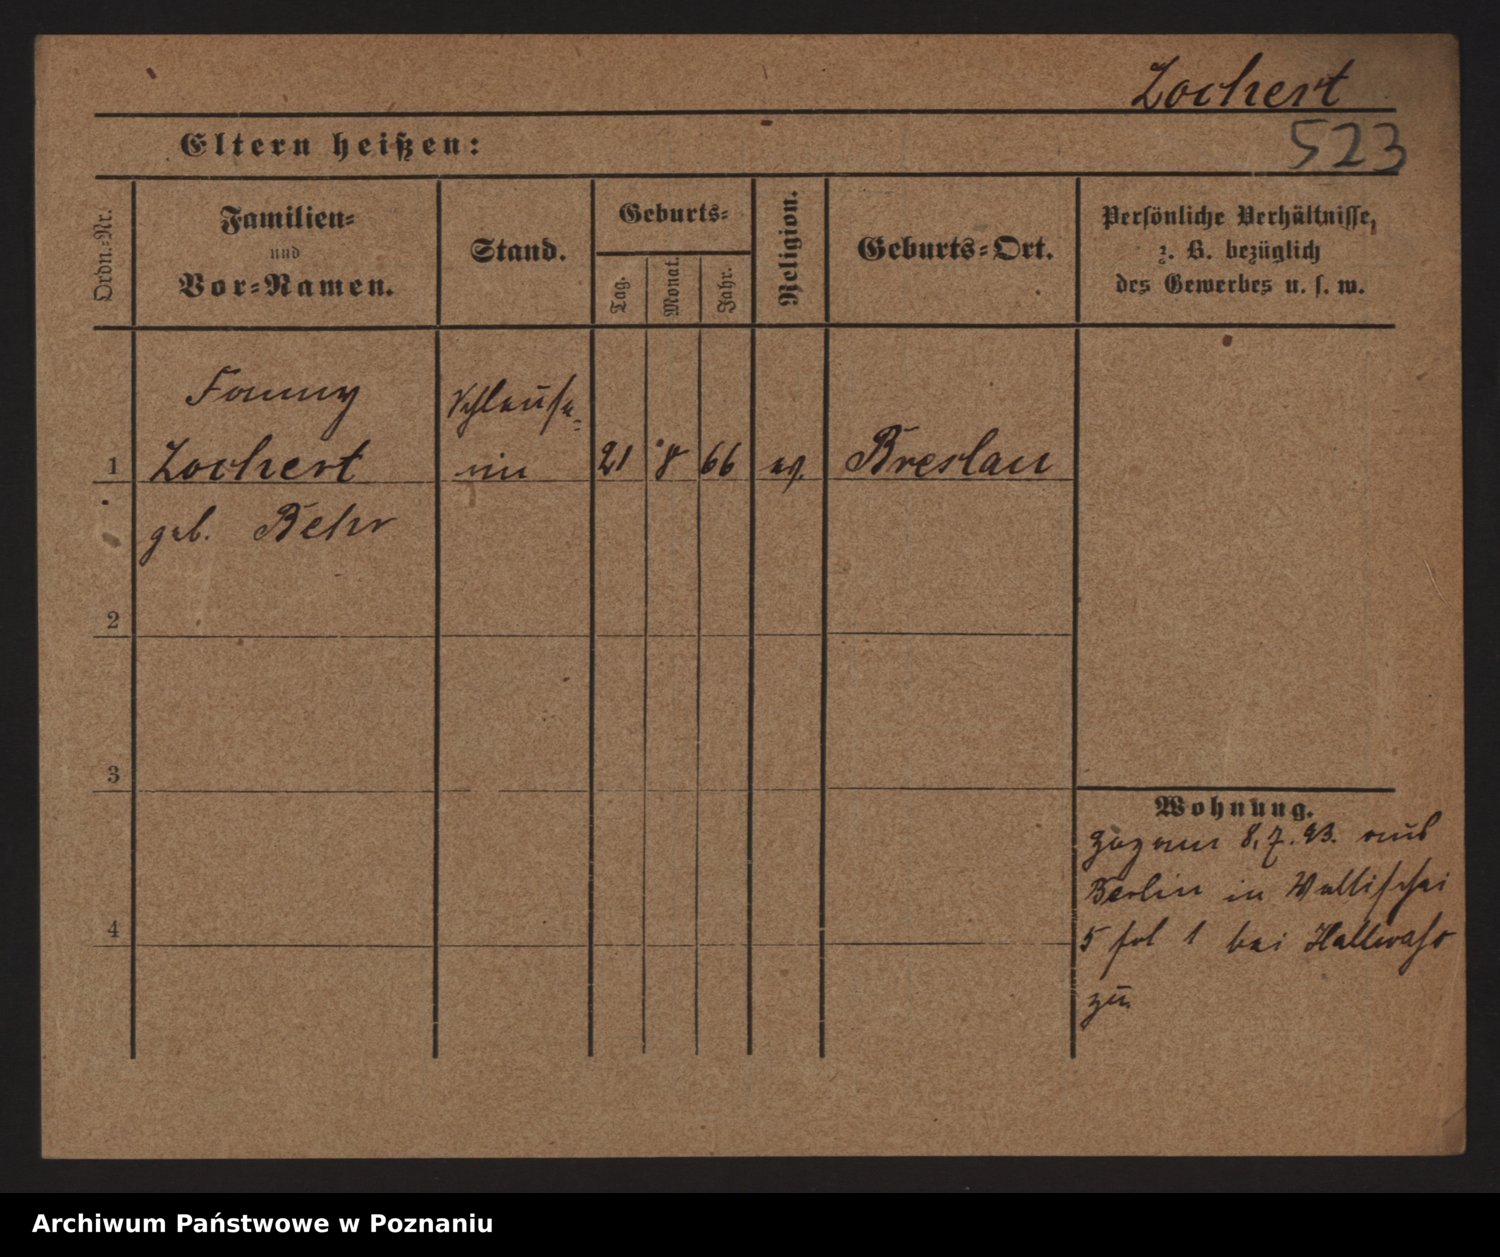 Zochert
523
Eltern heißen:
Ordn.-Nr.
Familien-
und
Vor-Namen.
Stand.
Geburts-
Tag.
Monat.
Jahr.
Religion.
Geburts-Ort.
Persönliche Verhältnisse,
z. B. bezüglich
des Gewerbes u. s. w.
Fanny
1 Zochert 21 8 66 ev. Breslau
geb. Behr
2
3
4
Wohnung.
8.7.93. aus
Berlin in Wallischei
5 bei
zu
Archiwum Państwowe w Poznaniu